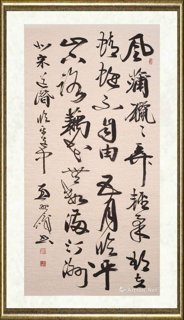 風蒲獵〻弄輕柔欲立
蜻蜓不自由五月臨平
山下路藕花無數滿汀洲
北宋道潛臨平